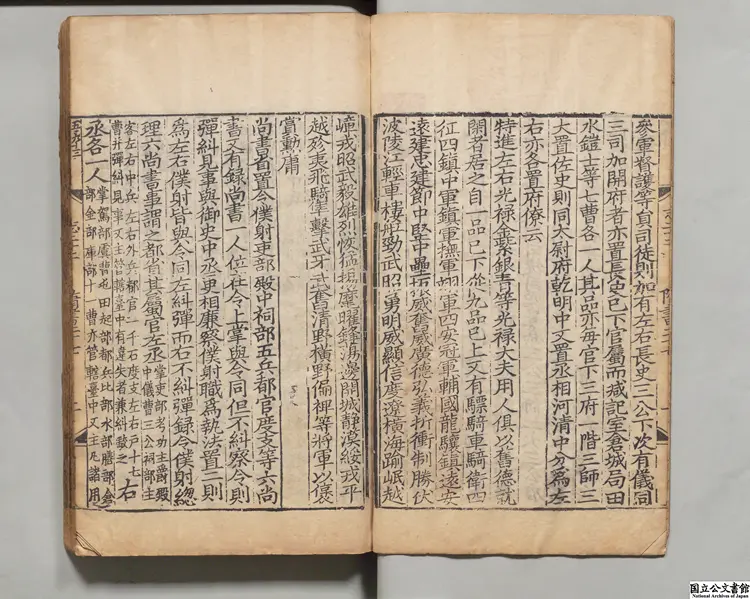 參軍督護等員司徒則加有左右長史三公下次有儀同
三司加開府者亦置長史已下官屬而減記室倉城局田
水鎧士等七曹各一人其品亦每官下三府一階三師三
大置佐史則同太尉府乾明中又置丞相河清中分為左
右亦各置府僚云
特進左右光祿金紫銀青等光祿大夫用人俱以舊德就
閑者居之自一品已下從九品已上又有驃騎車騎衛四
征四鎮中軍鎮軍撫軍 軍四安冠軍輔國龍驤鎮遠安
遠建忠建節中堅中壘振威奮威廣德弘義折衝制勝伏
波陵江輕車樓船勁武昭勇明威顯信度遼橫海踰岷越
嶂戎昭武毅雄烈恢猛揚麾曜鋒蕩邊開城靜漠綏戎平
越殄夷飛騎隼擊武牙武奮清野橫野偏裨等將軍以襃
賞勳庸
尚書省置令僕射吏部殿中祠部五兵都官度支等六尚
書又有錄尚書一人位在令上掌與令同但不糾察令則
彈糾見事與御史中丞更相廉察僕射職為執法置二則
為左右僕射皆與令同左糾彈而右不糾彈錄令僕射總
理六尚書事謂之都省其屬官左丞
掌吏部考功主爵殿
中儀曹三公祠部主
客左右中兵左右外兵都官二千石度支左右戶十七
曹并彈糾見事又主管轄臺中有違失者兼糾駮之
右
丞各一人
掌駕部虞曹屯田起部都兵比部水部膳部倉
部金部庫部十一曹亦管轄臺中又主凡諸用
国立公文書館
National Archives of Japan